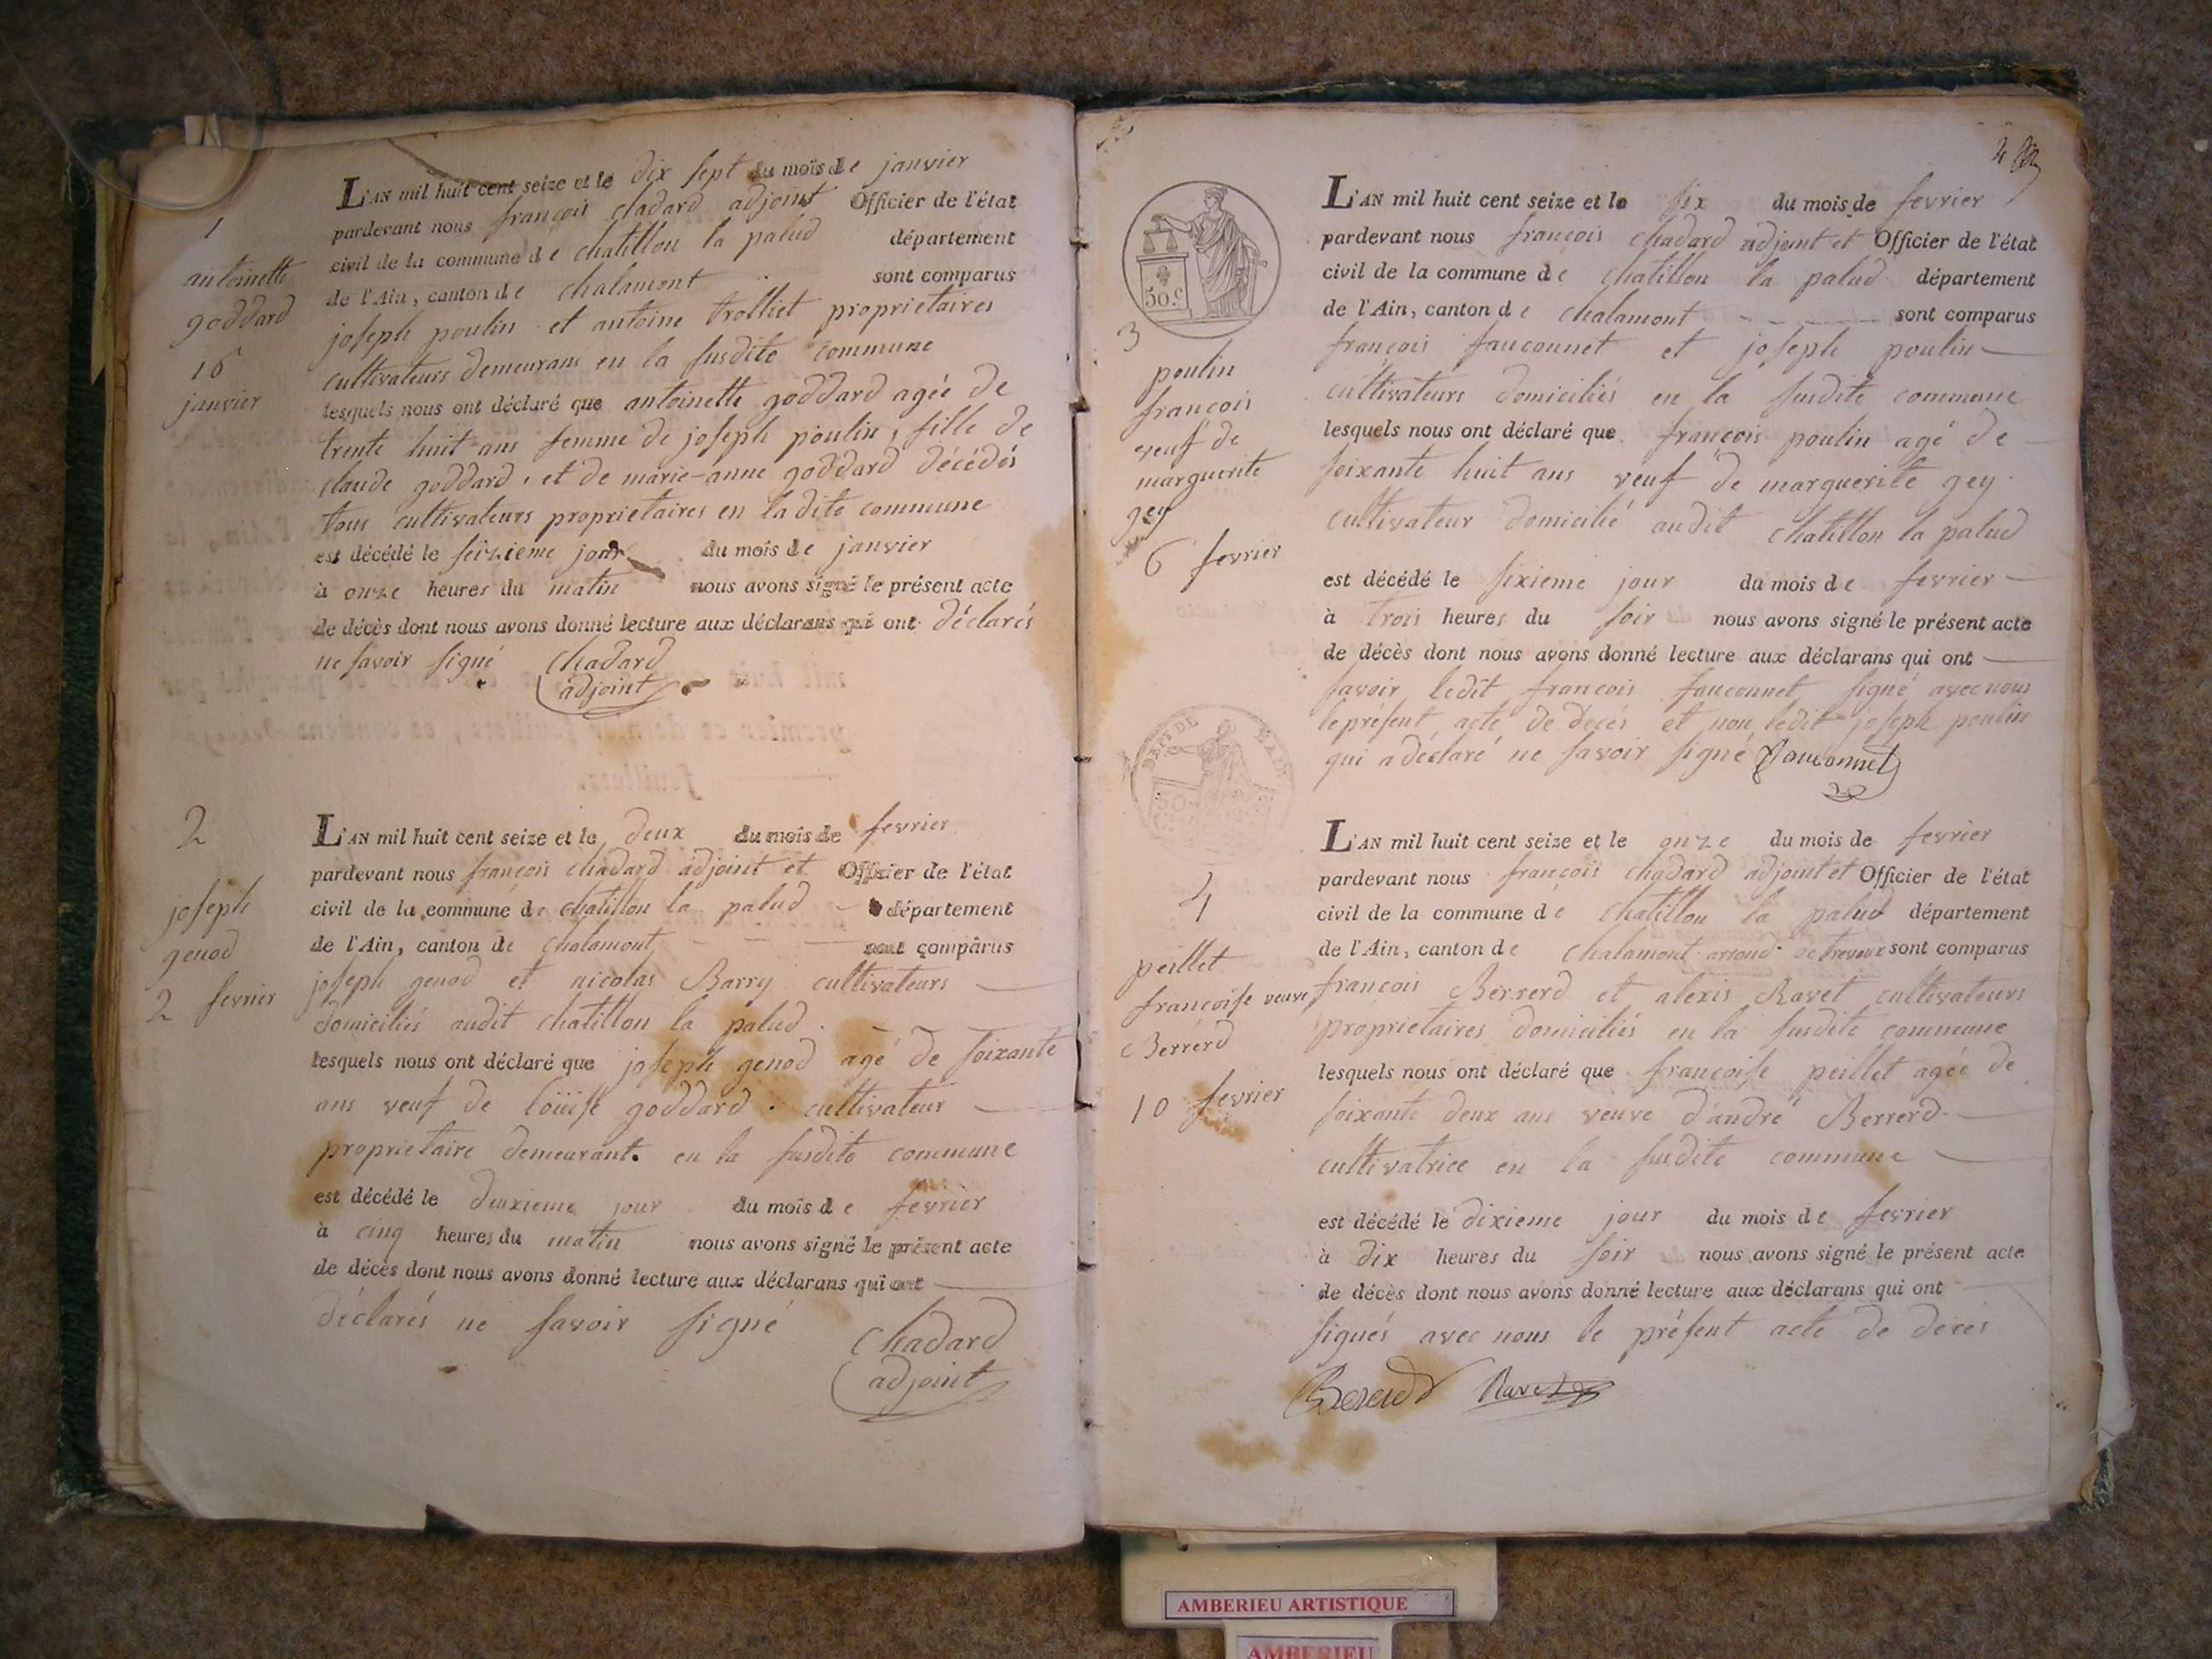 1
antoinette
goddard
16
janvier
L'AN mil huit cent seize et le dix sept du mois de janvier
pardevant nous françois chadard adjoint Officier de l'état
civil de la commune de chatillon la palud département
de l'Ain, canton de chalamont sont comparus
joseph poulin et antoine trolliet proprietaires
cultivateurs demeurans en la susdite commune
lesquels nous ont déclaré que antoinette goddard agée de
trente huit ans femme de joseph poulin, fille de
claude goddard, et de marie-anne goddard décédés
tous cultivateurs proprietaires en ladite commune
est décédé le seizieme jour du mois de janvier
à onze heures du matin nous avons signé le présent acte
de décès dont nous avons donné lecture aux déclarans qui ont déclarés
ne savoir signé chadard
adjoint
2
joseph
genod
2 fevrier
L'AN mil huit cent seize et le deux du mois de fevrier
pardevant nous françois chadard adjoint et Officier de l'état
civil de la commune de chatillon la palud département
de l'Ain, canton de chalamont sont comparus
joseph genod et nicolas Barry cultivateurs
domiciliés audit chatillon la palud
lesquels nous ont déclaré que joseph genod agé de soixante
ans veuf de loüise goddard cultivateur
proprietaire demeurant en la susdite commune
est décédé le deuxieme jour du mois de fevrier
à cinq heures du matin nous avons signé le présent acte
de décès dont nous avons donné lecture aux déclarans qui ont
déclarés ne savoir signé
chadard
adjoint
4
50.c
3
poulin
françois
veuf de
marguerite
gey
6 fevrier
L'AN mil huit cent seize et le six du mois de fevrier
pardevant nous françois chadard adjoint et Officier de l'état
civil de la commune de chatillon la palud département
de l'Ain, canton de chalamont sont comparus
françois fauconnet et joseph poulin
cultivateurs domiciliés en la susdite commune
lesquels nous ont déclaré que françois poulin agé de
soixante huit ans veuf de marguerite gey
cultivateur domicilié audit chatillon la palud
est décédé le sixieme jour du mois de fevrier
à trois heures du soir nous avons signé le présent acte
de décès dont nous avons donné lecture aux déclarans qui ont
savoir ledit françois fauconnet signé avec nous
le présent acte de décés et non ledit joseph poulin
qui a déclaré ne savoir signé Fauconnet
4
peillet
françoise veuve
Berrerd
10 fevrier
L'AN mil huit cent seize et le onze du mois de fevrier
pardevant nous françois chadard adjoint et Officier de l'état
civil de la commune de chatillon la palud département
de l'Ain, canton de chalamont arrond. de trevoux sont comparus
françois Berrerd et alexis Ravet cultivateurs
proprietaires domiciliés en la susdite commune
lesquels nous ont déclaré que françoise peillet agée de
soixante deux ans veuve d'andré Berrerd
cultivatrice en la susdite commune
est décédé le dixieme jour du mois de fevrier
à dix heures du soir nous avons signé le présent acte
de décès dont nous avons donné lecture aux déclarans qui ont
signés avec nous le présent acte de décés
Bererd Ravet
AMBERIEU ARTISTIQUE
AMBERIEU